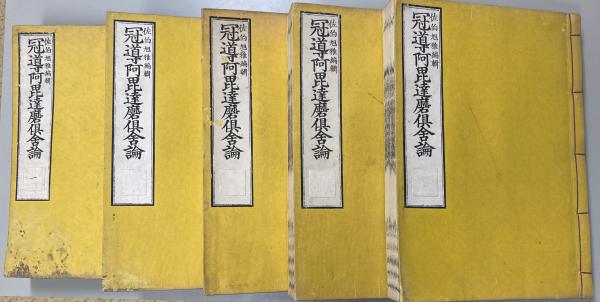 佐伯旭雅編輯
冠導阿毘達磨倶舎論
一
佐伯旭雅編輯
冠導阿毘達磨倶舎論
佐伯旭雅編輯
冠導阿毘達磨倶舎論
佐伯旭雅編輯
冠導阿毘達磨倶舎論
佐伯旭雅編輯
冠導阿毘達磨倶舎論